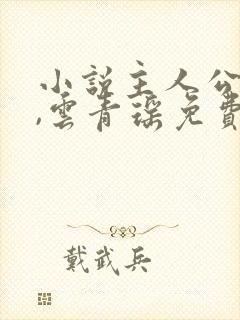 小說主人公
,雲青瑤免費
戴武兵